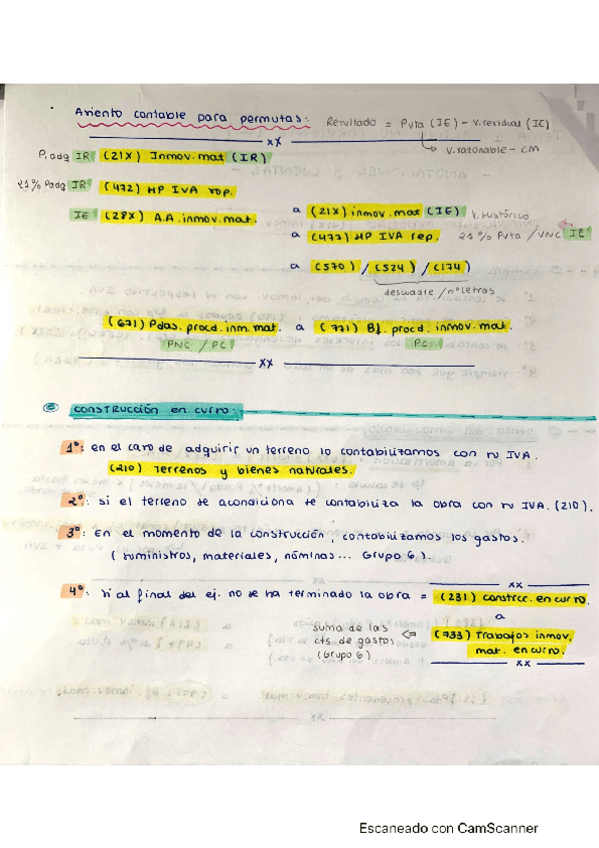 Asiento contable para permutas: Resultado = Pvta (IE) - V. residual (IE)
xx
V. razonable - CM
P. adq IR (21X) Inmov. mat (IR)
21% Padq IR (472) HP IVA sop.
IE (28X) A.A. inmov. mat. a (21X) inmov. mat (IE) V. Histórico
a (477) HP IVA rep. 21% Pvta / VNC IE
a (570) / (524) / (174)
descuadre / nº letros
(671) Pdas. proced. inm. mat. a (771) Bf. proced. inmov. mat.
PNC / PC PC
xx
CONSTRUCCIÓN en curso:
1º: en el caso de adquirir un terreno lo contabilizamos con su IVA.
(210) Terrenos y bienes naturales.
2º: si el terreno se acondiciona se contabiliza la obra con su IVA. (210).
3º: En el momento de la construcción, contabilizamos los gastos.
(suministros, materiales, nóminas... Grupo 6).
xx
4º: si al final del ej. no se ha terminado la obra = (231) constrcc. en curso.
a
suma de las cts. de gastos (Grupo 6) ⇐ (733) Trabajos inmov. mat. en curso.
xx
xx
Escaneado con CamScanner